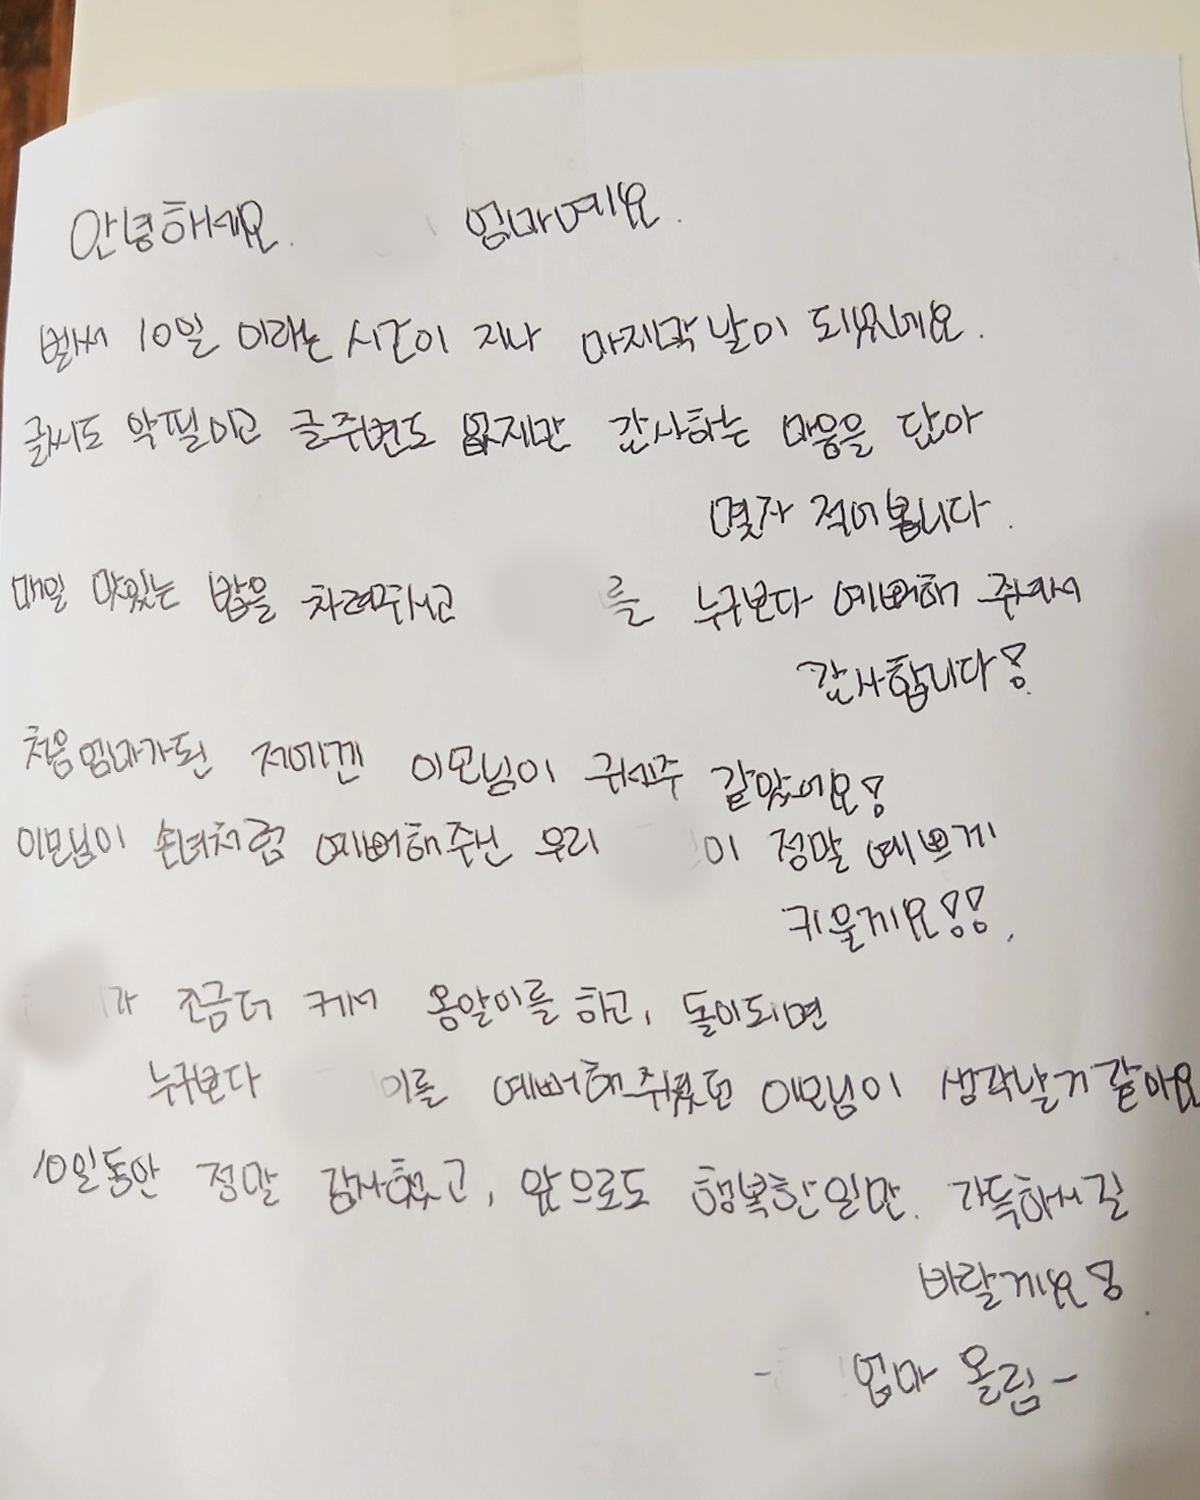 안녕해세요. 엄마예요.
벌써 10일 이라는 시간이 지나 마지막 날이 되었네요.
글씨도 악필이고 글주변도 없지만 감사하는 마음을 담아
몇자 적어봅니다.
매일 맛있는 밥을 차려주시고 를 누구보다 예뻐해 주셔서
감사합니다!
처음 엄마가된 저에겐 이모님이 구세주 같았어요!
이모님이 손녀처럼 예뻐해주신 우리 이 정말 예쁘게
키울게요!!.
가 조금더 커서 옹알이를 하고, 돌이되면
누구보다 이를 예뻐해주셨던 이모님이 생각날거같아요
10일동안 정말 감사했고, 앞으로도 행복한일만 가득하시길
바랄게요!
- 엄마 올림-